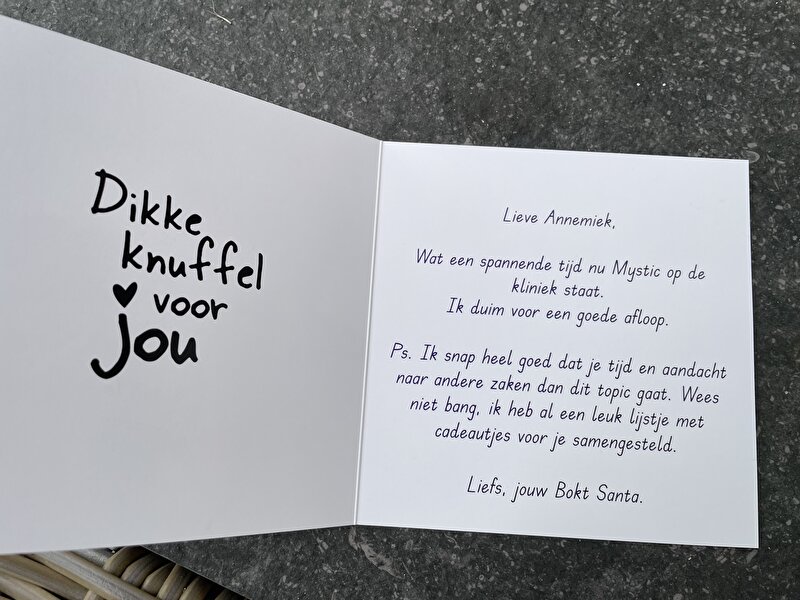 Dikke
knuffel
♥ voor
jou
Lieve Annemiek,
Wat een spannende tijd nu Mystic op de
kliniek staat.
Ik duim voor een goede afloop.
Ps. Ik snap heel goed dat je tijd en aandacht
naar andere zaken dan dit topic gaat. Wees
niet bang, ik heb al een leuk lijstje met
cadeautjes voor je samengesteld.
Liefs, jouw Bokt Santa.